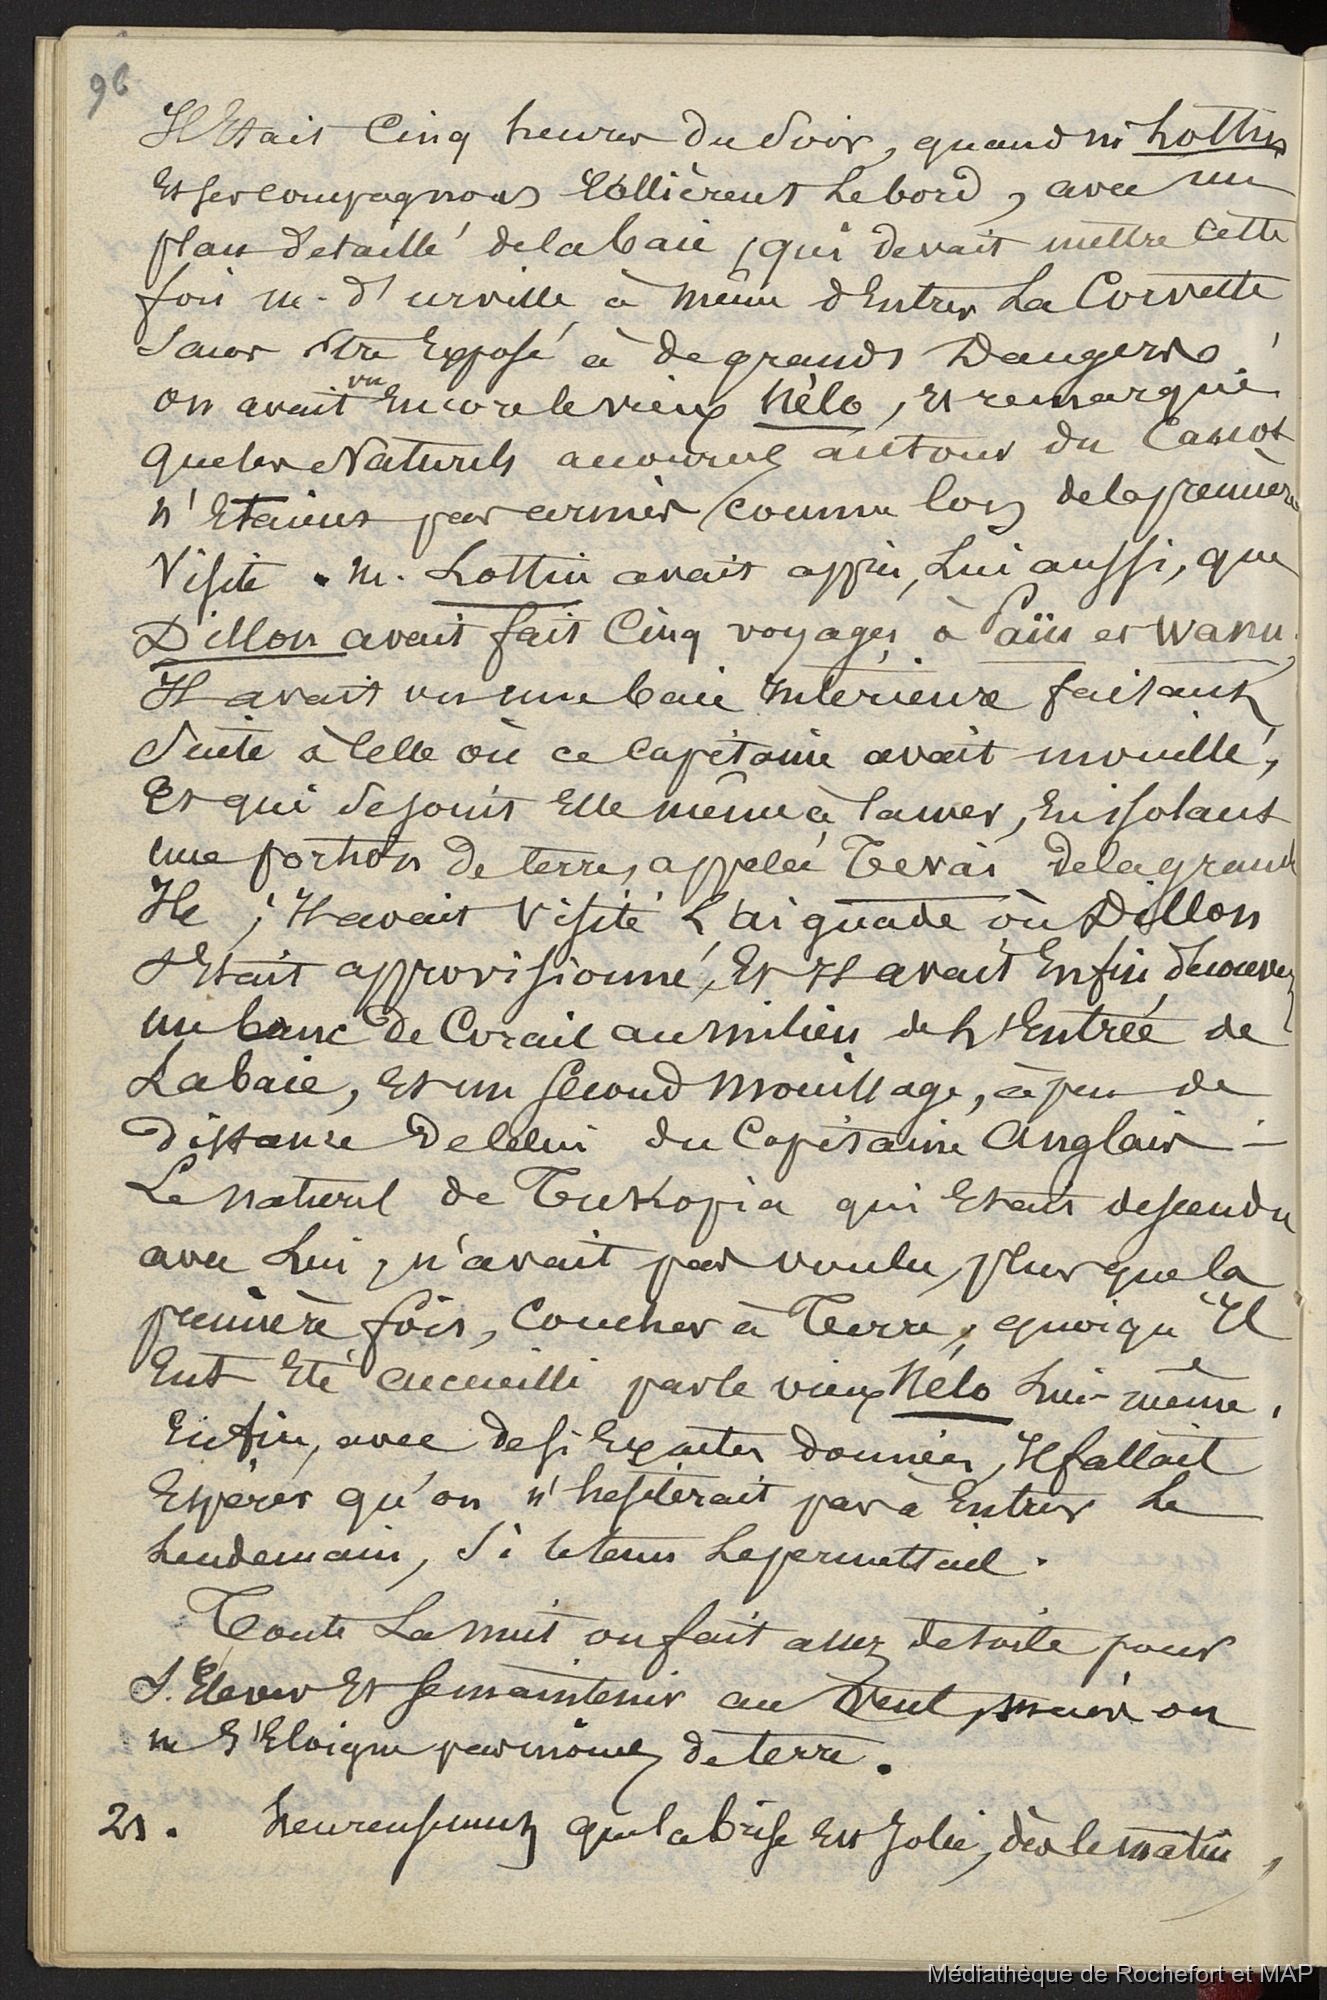 96
Il Etait Cinq heures du Soir, quand M. Lottin
Et ses compagnons rallièrent Le bord, avec un
plan détaillé de la baie, qui devait mettre cette
fois M. d'urville à même d'Entrer La Corvette
Sans être Exposé à de grands Dangers
on avait vu Encore le vieux Nélo, Et remarqué
que les Naturels accourus autour du Canot
n'Etaient pas armés comme lors de la première
Visite. M. Lottin avait appris, Lui aussi, que
Dillon avait fait Cinq voyages à Païu et Wanu.
Il avait vu une baie Intérieure faisant
Suite à Celle où ce Capitaine avait mouillé,
Et qui se joint Elle même à la mer, En isolant
une portion de terres, appelée Tevai de la grande
Ile ; Il avait Visité L'aiguade où Dillon
s'Etait approvisionné, Et Il avait Enfin découvert
un banc de Corail au milieu de L'Entrée de
La baie, Et un second Mouillage, à peu de
Distance de Celui du Capitaine Anglais -
Le naturel de Tukopia qui Etait descendu
avec Lui, n'avait pas voulu, plus que la
première fois, Coucher à Terre, quoiqu'Il
Eut Eté accueilli par le vieux Nélo Lui-même,
Enfin, avec de si Exactes données, Il fallait
Espérer qu'on n'hesiterait pas à Entrer Le
Lendemain, Si le tems Le permettait.
Toute La nuit on fait assez de toile pour
S'Elever Et se maintenir au Vent, mais on
ne S'Eloigne pas moins de terre.
21. heureusement que la brise Est Jolie, dès le matin,
Médiathèque de Rochefort et MAP